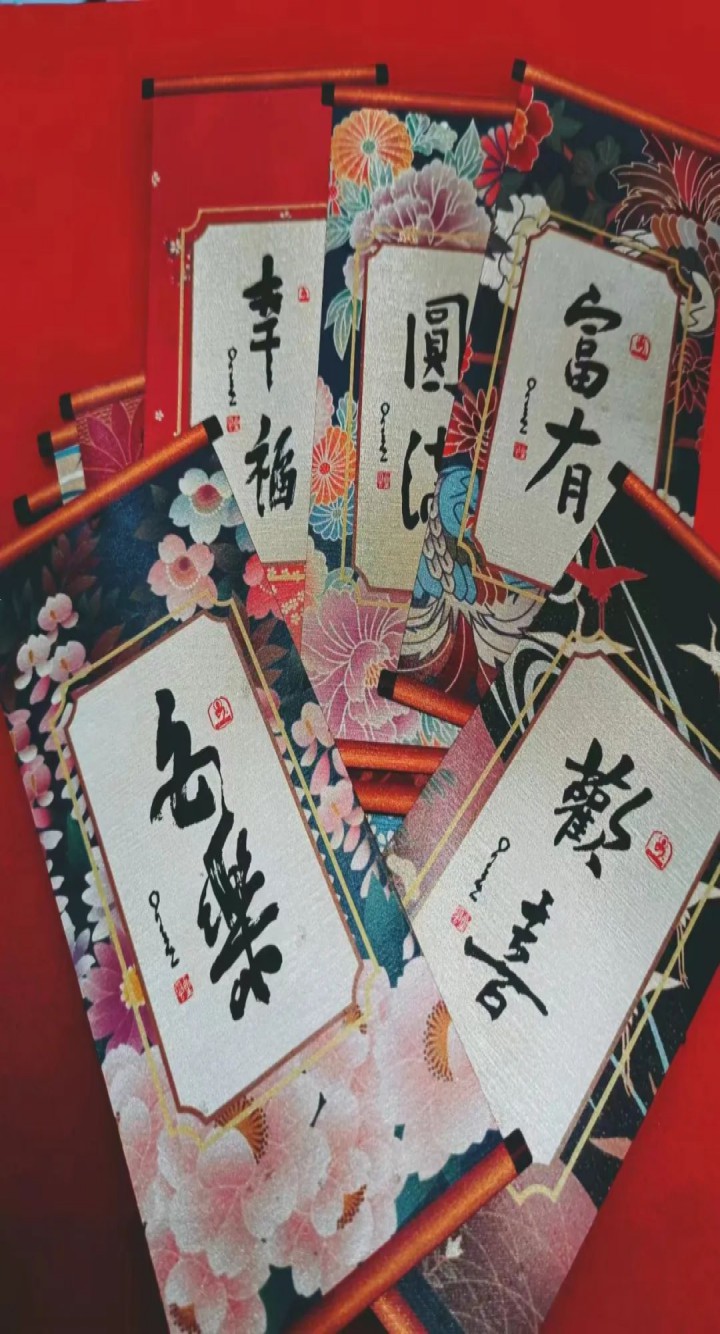 幸福
圓
富有
安樂
歡喜